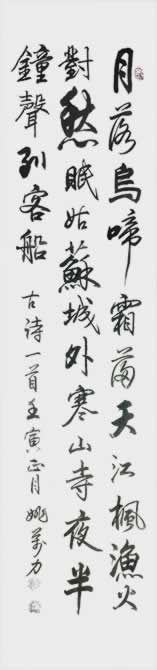 月落烏啼霜滿天江楓漁火
對愁眠姑蘇城外寒山寺夜半
鐘聲到客船 古诗一首壬寅正月 姚萬力